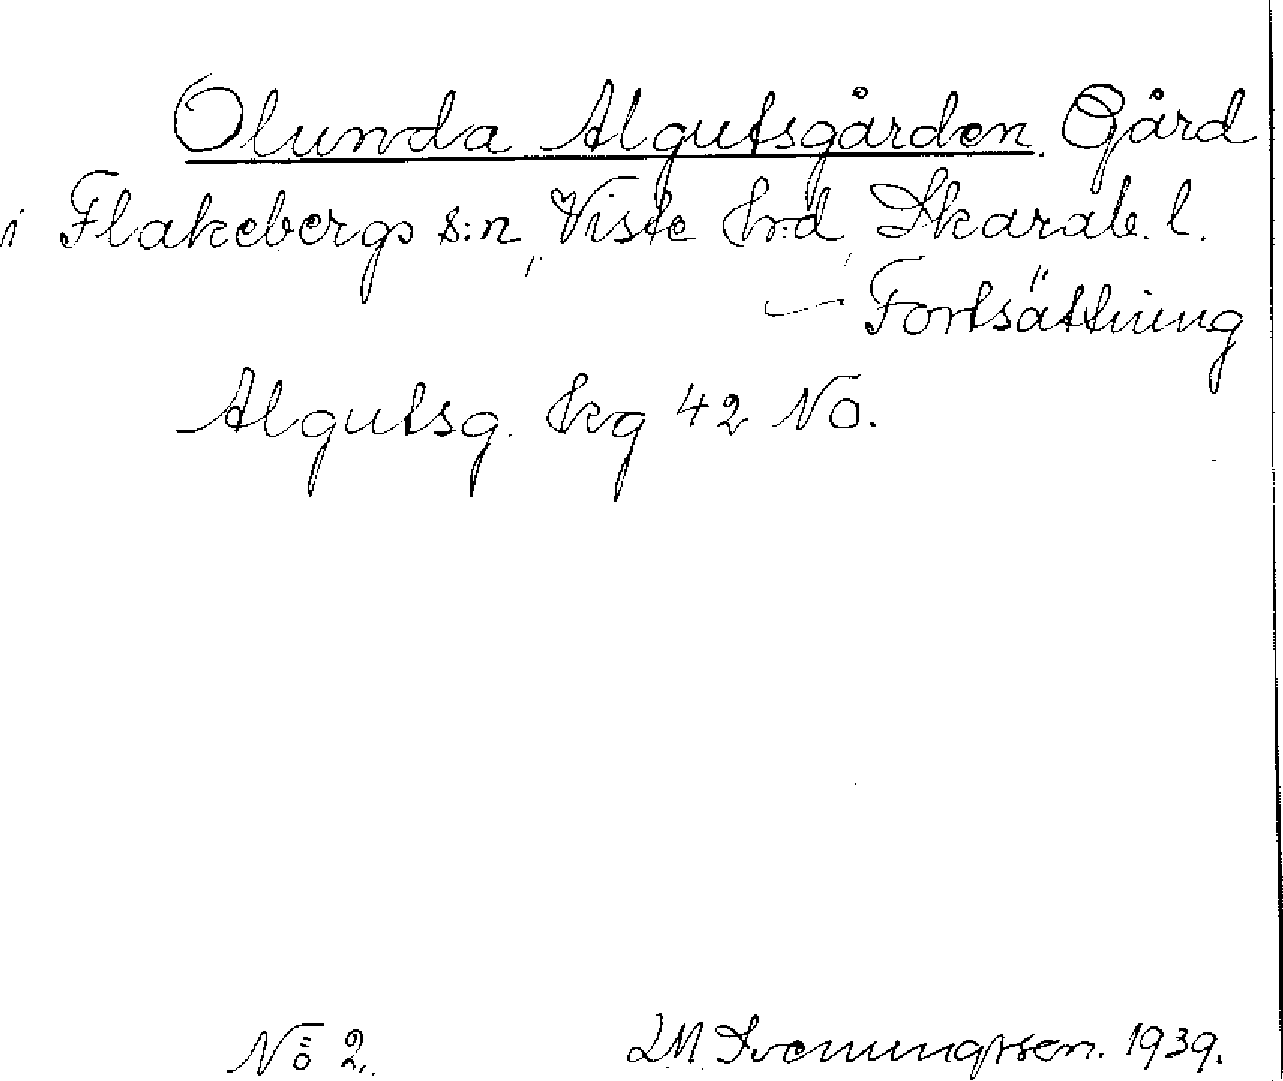 Olunda Algutsgården. Gård
i Flakebergs s:n, Viste h:d, Skarab. l.
— Fortsättning
Algutsg. Hg 42 NO.
No 2.
LM. Svenungsson. 1939.